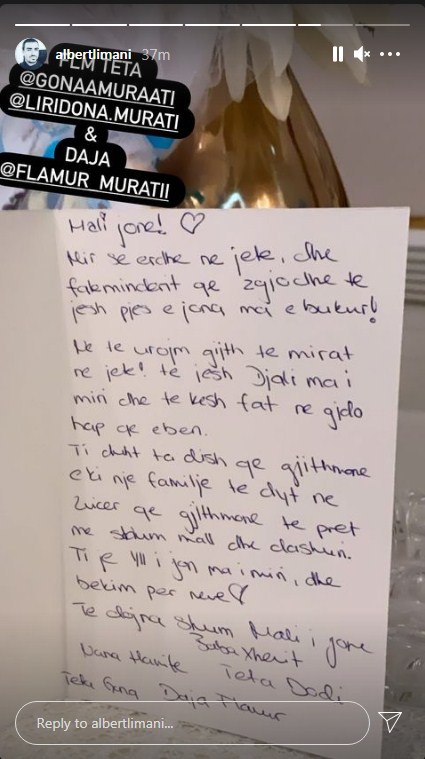 albertlimani 37m
FLM TETA
@GONAAMURAATI
@LIRIDONA.MURATI
&
DAJA
@FLAMUR_MURATII
Mali jone! ♡
Mir se erdhe ne jete, dhe
faleminderit qe zgjodhe te
jesh pjes e jona ma e bukur!
Ne te urojm gjith te mirat
ne jete! te jesh Djali ma i
miri dhe te kesh fat ne gjdo
hap qe eben.
Ti duht ta dish qe gjithmone
e ki nje familje te dyt ne
Zvicer qe gjithmone te pret
me shum mall dhe dashuri.
Ti je yll i jon ma i miri, dhe
bekim per neve ♡
Te dojna shum Mali i jone
Baba Xherit
Nana Teta Dodi
Teta Gona Daja Flamur
Reply to albertlimani...